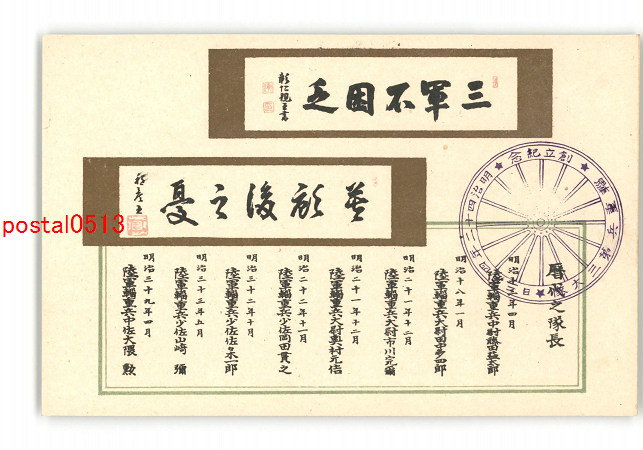 三軍不困乏
彰仁親王書
無顧後之憂
創立紀念
明治四十二年四月
輜重兵第三大
歴代之隊長
明治十三年四月
陸軍輜重兵中尉勝田益太郎
明治十八年一月
陸軍輜重兵大尉田中多四郎
明治二十一年十二月
陸軍輜重兵大尉市川完爾
明治二十一年十二月
陸軍輜重兵大尉奥村元信
明治二十二年十一月
陸軍輜重兵少佐岡田貫之
明治三十二年十月
陸軍輜重兵少佐佐々木一郎
明治三十三年五月
陸軍輜重兵少佐山崎彌
明治三十九年四月
陸軍輜重兵中佐大隈勲
postal0513